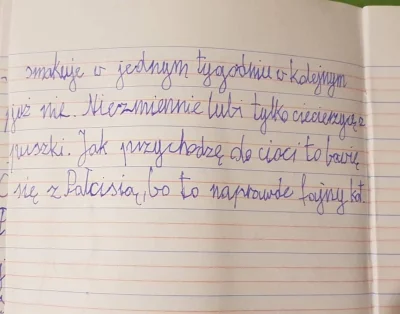 smakuje w jednym tygodniu w kolejnym
już nie. Niezmiennie lubi tylko ciecierzycę z
puszki. Jak przychodzę do cioci to bawię
się z Palcisią, bo to naprawde fajny kot.